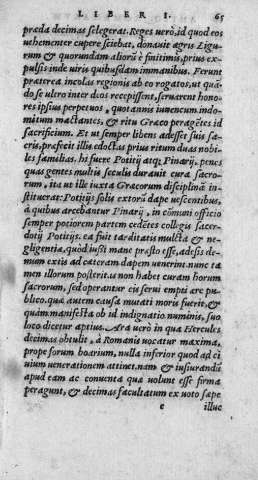 LIBER I. 65
præda decimas selegerat. Reges uerò, id quod eos
uehementer cupere sciebat, donauit agris Ligu
rum & quorundam aliorū è finitimis, prius ex
pulsis inde uiris quibusdam immanibus. Ferunt
præterea incolas regionis ab eo rogatos, ut quā
do se ultro inter deos recepissent, seruarent hono
res ipsius perpetuos, quotannis iuuencum indo
mitum mactantes, & ritu Græco peragētes id
sacrificium. Et ut semper libens adesset suis sa
cris, præfecit illis edoctas prius ritum duas nobi
les familias. hi fuere Potitij atq; Pinarij, penes
quas gentes multis seculis durauit cura sacro
rum, ita ut ille iuxta Græcorum disciplinā in
stituerat: Potitijs solis extorū dape uescentibus,
à quibus arcebantur Pinarij, in cōmuni officio
semper potiorem partem cedētes collegis sacer
dotij Potitijs. ea fuit tarditatis mulcta & ne
gligentia, quòd iusti manè præsto esse, adesis de
mum extis ad cæteram dapem uenerint. nunc ta
men illorum posteritas non habet curam horum
sacrorum, sed operantur eis serui empti ære pu
blico. quæ autem causa mutati moris fuerit, &
quàm manifesta ob id indignatio numinis, suo
loco dicetur aptius. Ara uerò in qua Hercules
decimas obtulit, à Romanis uocatur maxima,
prope forum boarium, nulla inferior quod ad ci
uium uenerationem attinet. nam & iusiurandū
apud eam ac conuenta quæ uolunt esse firma
peragunt, & decimas facultatum ex uoto sæpe
e illuc